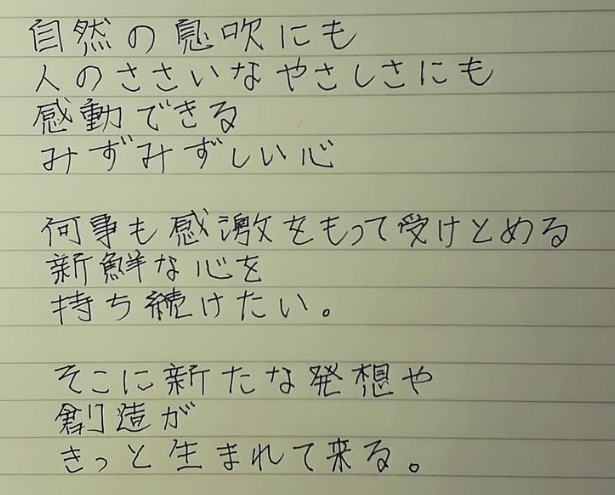 自然の息吹にも
人のささいなやさしさにも
感動できる
みずみずしい心
何事も感激をもって受けとめる
新鮮な心を
持ち続けたい。
そこに新たな発想や
創造が
きっと生まれて来る。